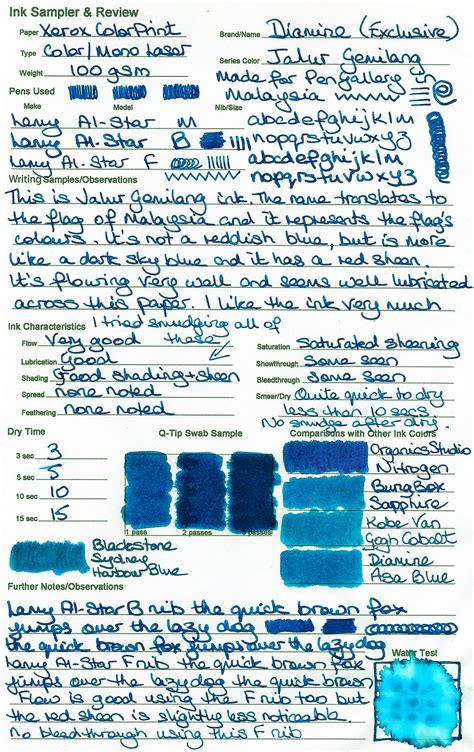 Ink Sampler & Review
Paper Xerox ColorPrint
Type Color/Mono Laser
Weight 100gsm
Brand/Name Diamine (Exclusive)
Series Color Jalur Gemilang
made for Pengallery in
Malaysia
Pens Used
Make Model Nib/Size
Lamy Al-Star M
Lamy Al-Star B
Lamy Al-Star F
abcdefghijklm
nopqrstuvwxyz
abcdefghijklm
nopqrstuvwxyz
Writing Samples/Observations
This is Jalur Gemilang ink. The name translates to
the flag of Malaysia and it represents the flag's
colours. It's not a reddish blue, but is more
like a dark sky blue and it has a red sheen.
It's flowing very well and seems well lubricated
across this paper. I like the ink very much
Ink Characteristics
I tried smudging all of
these
Flow Very good
Lubrication Good
Shading Good shading + sheen
Spread none noted
Feathering none noted
Saturation Saturated sheening
Showthrough Some seen
Bleedthrough Some seen
Smear/Dry Quite quick to dry
less than 10 secs.
No smudge after dry.
Dry Time
3 sec 3
5 sec 5
10 sec 10
15 sec 15
Q-Tip Swab Sample
1 pass 2 passes 3 passes
Comparisons with Other Ink Colors
Organics Studio
Nitrogen
BungBox
Sapphire
Kobe Van
Gogh Cobalt
Diamine
Asa Blue
Blackstone
Sydney
Harbour Blue
Further Notes/Observations
Lamy Al-Star B nib the quick brown fox
jumps over the lazy dog
the quick brown fox jumps over the lazy dog
Lamy Al-Star F nib the quick brown fox
jumps over the lazy dog the quick brown
Flow is good using the F nib too but
the red sheen is slightly less noticeable.
No bleedthrough using this F nib
Water Test